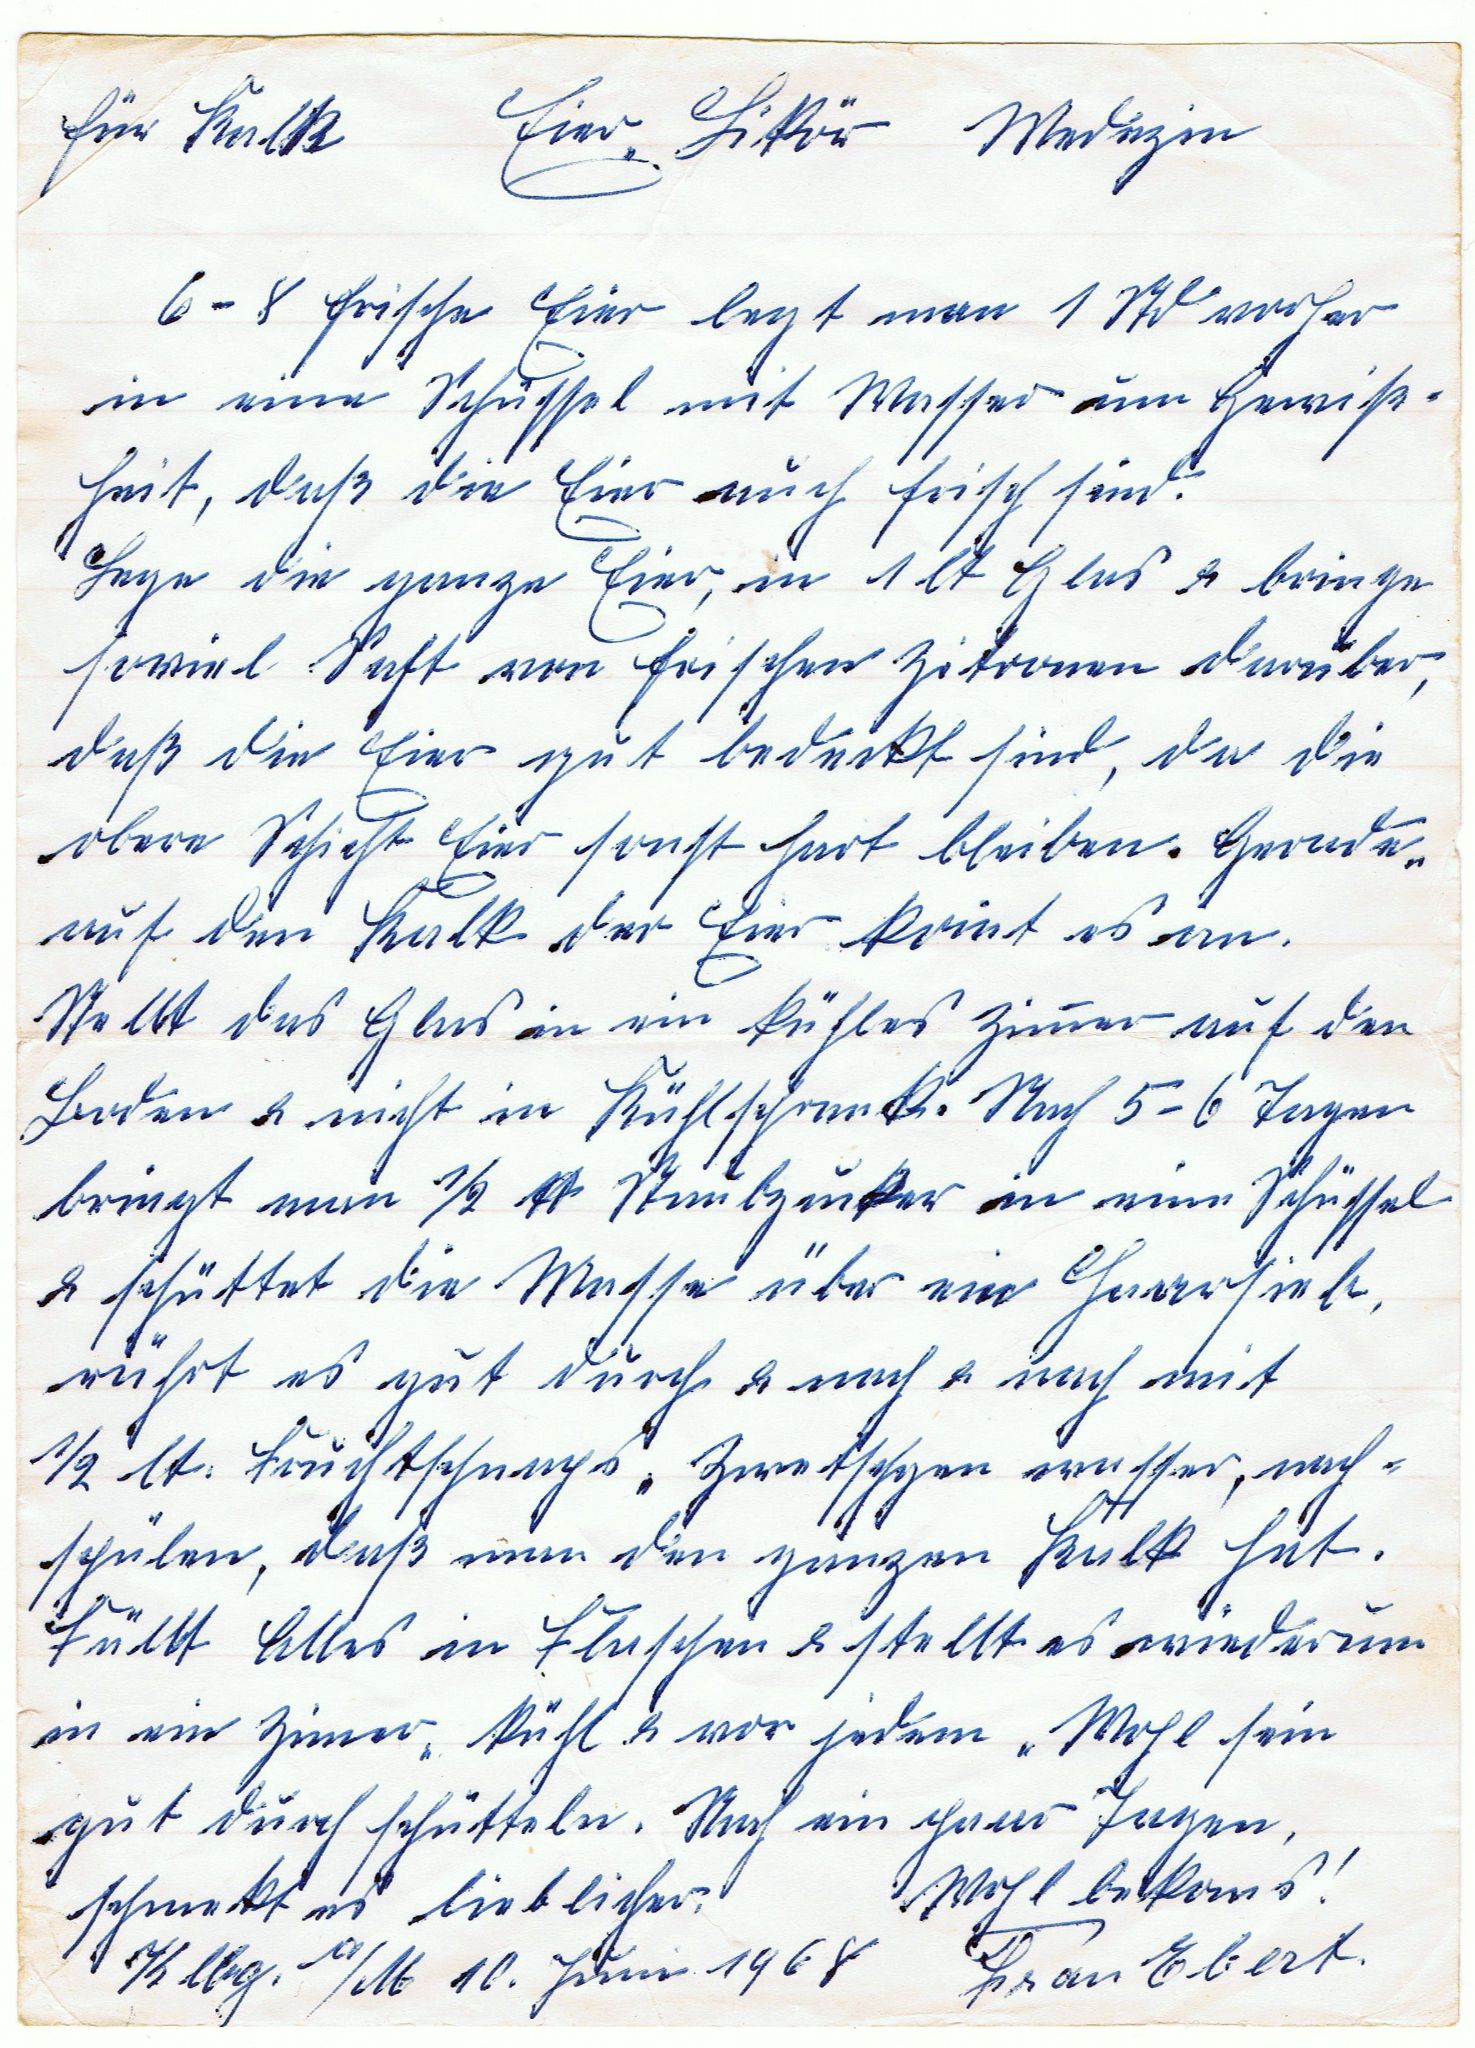 für Kalk Eier„ Likör Medizin
6-8 frische Eier legt man 1 Std vorher
in eine Schüssel mit Wasser um Gewiß-
heit, daß die Eier auch frisch sind.
Lege die ganze Eier, in 1 lt Glas & bringe
soviel Saft von frischen Zitronen darüber,
daß die Eier gut bedeckt sind, da die
obere Schicht Eier sonst hart bleiben. Gerade„
auf den Kalk der Eier komt es an.
Stellt das Glas in ein kühles Zimer auf den
Boden & nicht in Kühlschrank. Nach 5-6 Tagen
bringt man 1/2 ℔ Staubzucker in eine Schüssel
& schüttet die Masse über ein Haarsieb,
rührt es gut durch & nach & nach mit
1/2 lt. Fruchtschnaps„ Zwetschgen wasser, nach-
spülen, daß man den ganzen Kalk hat.
Füllt Alles in Flaschen & stellt es wiederum
in ein Zimer„ kühl & vor jedem „Wohl sein
gut durch schütteln. Nach ein paar Tagen,
schmekt es lieblicher. Wohl bekoms!
a/M 10. Juni 1968 Frau Ebert.